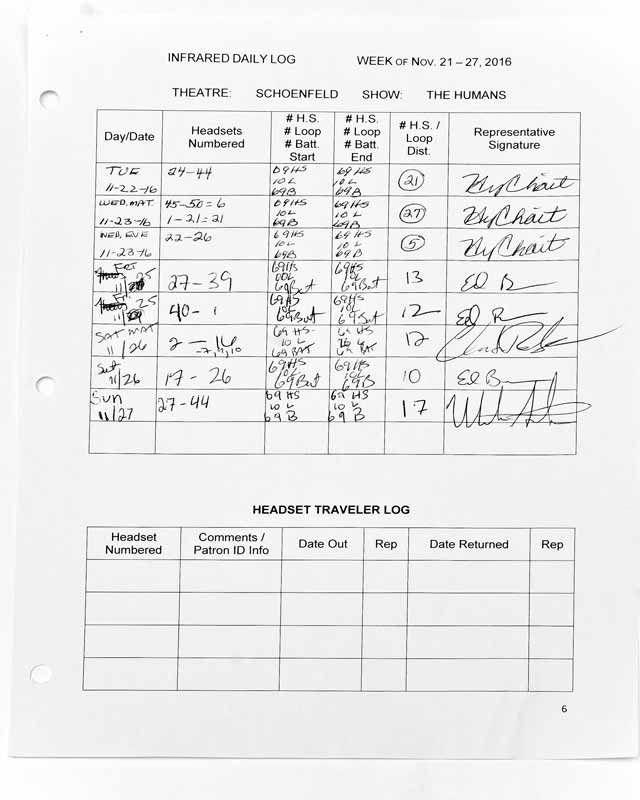 INFRARED DAILY LOG WEEK OF NOV. 21 – 27, 2016
THEATRE: SCHOENFELD SHOW: THE HUMANS
Day/Date Headsets Numbered # H.S. # Loop # Batt. Start # H.S. # Loop # Batt. End # H.S. / Loop Dist. Representative Signature
TUE 11-22-16 24-44 69HS 10 L 69B 69 HS 10 L 69 B 21 Hy Chait
WED. MAT. 11-23-16 45-50=6 1-21=21 69HS 10 L 69B 69 HS 10 L 69B 27 Hy Chait
WED. EVE 11-23-16 22-26 69HS 10 L 69B 69 HS 10 L 69 B 5 Hy Chait
11/25 27-39 69HS 69Bat 69HS 10L 69Bat 13 Ed
Fri 25 40-1 69HS 10L 69Bat 69HS 10L 69Bat 12 Ed
SAT MAT 11/26 69 HS 10 L 69 BAT 69 HS 10 L 69 BAT 12
Sat 11/26 17-26 69HS 10L 69Bat 69HS 10L 69B 10 Ed
Sun 11/27 27-44 69 HS 10 L 69 B 69 HS 10 L 69 B 17
HEADSET TRAVELER LOG
Headset Numbered Comments / Patron ID Info Date Out Rep Date Returned Rep
6